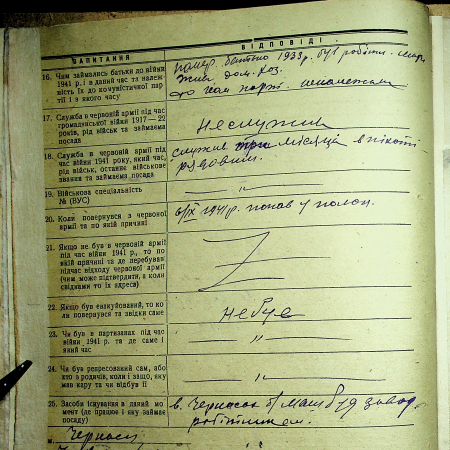 ЗАПИТАННЯ
ВІДПОВІДІ
16. Чим займались батьки до війни
1941 р. і в даний час та належ-
ність їх до комуністичної пар-
тії і з якого часу
помер батько 1933 р. був робітн.
дом. хоз.
17. Служба в червоній армії під час
громадянської війни 1917—22
років, рід військ та займаєма
посада
Не служив
18. Служба в червоній армії під
час війни 1941 року, який час,
рід військ, останнє військове
звання та займаєма посада
служив три місяця в піхоті
рядовим.
19. Військова спеціальність
№ (ВУС)
— „ —
20. Коли повернувся з червоної
армії та по якій причині
6/IX 1941 р. попав у полон.
21. Якщо не був в червоній армії
під час війни 1941 р., то по
якій причині та де перебував
підчас відходу червоної армії
(чим може підтвердити, а коли
свідками то їх адреса)
22. Якщо був евакуйований, то ко-
ли повернувся та звідки саме
не був
23. Чи був в партизанах під час
війни 1941 р. та де саме і
який час
— „ —
24. Чи був репресований сам, або
хто з родичів, коли і защо, яку
мав кару та чи відбув її
— „ —
25. Засоби існування в даний мо-
мент (де працює і яку займає
посаду)
в. Черкасах
завод
робітником.
м. Черкаси